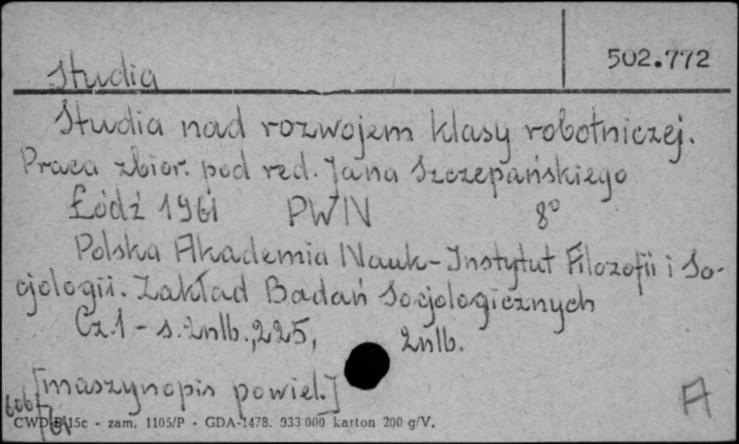 502.772
Studia
Studia nad rozwojem klasy robotniczej.
Praca zbior. pod red. Jana Szczepańskiego
Łódź 1961 PWN 8°
Polska Akademia Nauk-Instytut Filozofii i So-
cjologii. Zakład Badań Socjologicznych
Cz.1 - s.2nlb.,225, 2nlb.
[maszynopis powiel.]
A
606/61
CWD-B/15c - zam. 1105/P - GDA-1478. 933 000 karton 200 g/V.